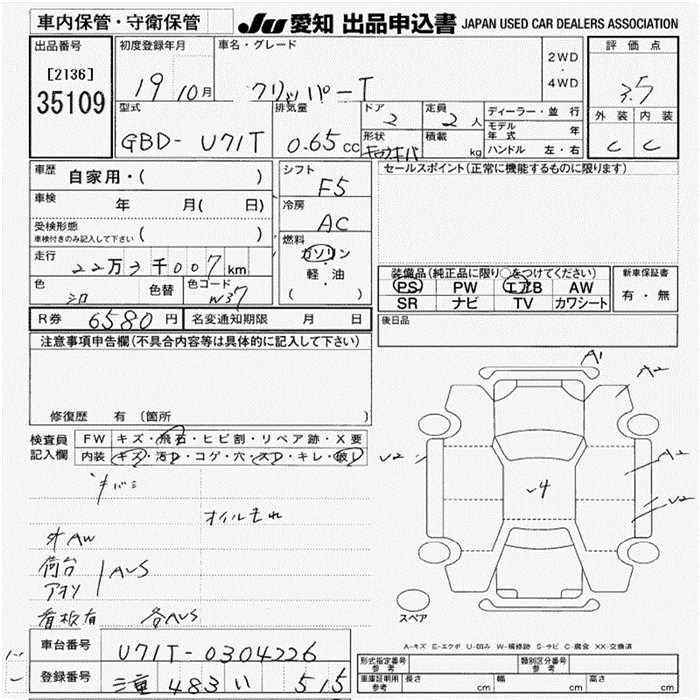 車内保管・守衛保管 JU 愛知 出品申込書 JAPAN USED CAR DEALERS ASSOCIATION
出品番号 初度登録年月 車名・グレード 評価点
[2136] 2WD
35109 19 10月 クリッパーT ・ 3.5
4WD
型式 排気量 ドア 定員 ディーラー・並行 外装 内装
GBD- U71T 0.65cc 2 2人 モデル年式 年 C C
形状 積載 kg ハンドル 左・右
車歴 自家用・( ) シフト F5 セールスポイント(正常に機能するものに限ります)
車検 年 月( 日) 冷房 AC
受検形態 ( )
車検付きのみ記入して下さい
燃料
走行 22万3千007km ガソリン 装備品(純正品に限り○をつけてください) 新車保証書
軽・油 PS PW エアB AW 有・無
色 シロ 色替 色コード W37 ( ) SR ナビ TV カワシート
R券 6580円 名変通知期限 月 日 後日品
注意事項申告欄(不具合内容等は具体的に記入して下さい)
A1 A2
修復歴 有 (箇所 )
検査員 FW キズ・飛石・ヒビ割・リペア跡・X要
記入欄 内装 キズ・汚レ・コゲ・穴・スレ・キレ・破レ
U2 A2
キバミ U4
U2
オイルもれ
オAW
荷台
アオリ AUS
看板有 各AUS
スペア
A-キズ E-エクボ U-凹み W-補修跡 S-サビ C-腐食 XX-交換済
車台番号 U71T-0304226
型式指定番号 参考 類別区分番号 参考
登録番号 三重 483 い 515
車庫証明用 参考 長さ cm 幅 cm 高さ cm